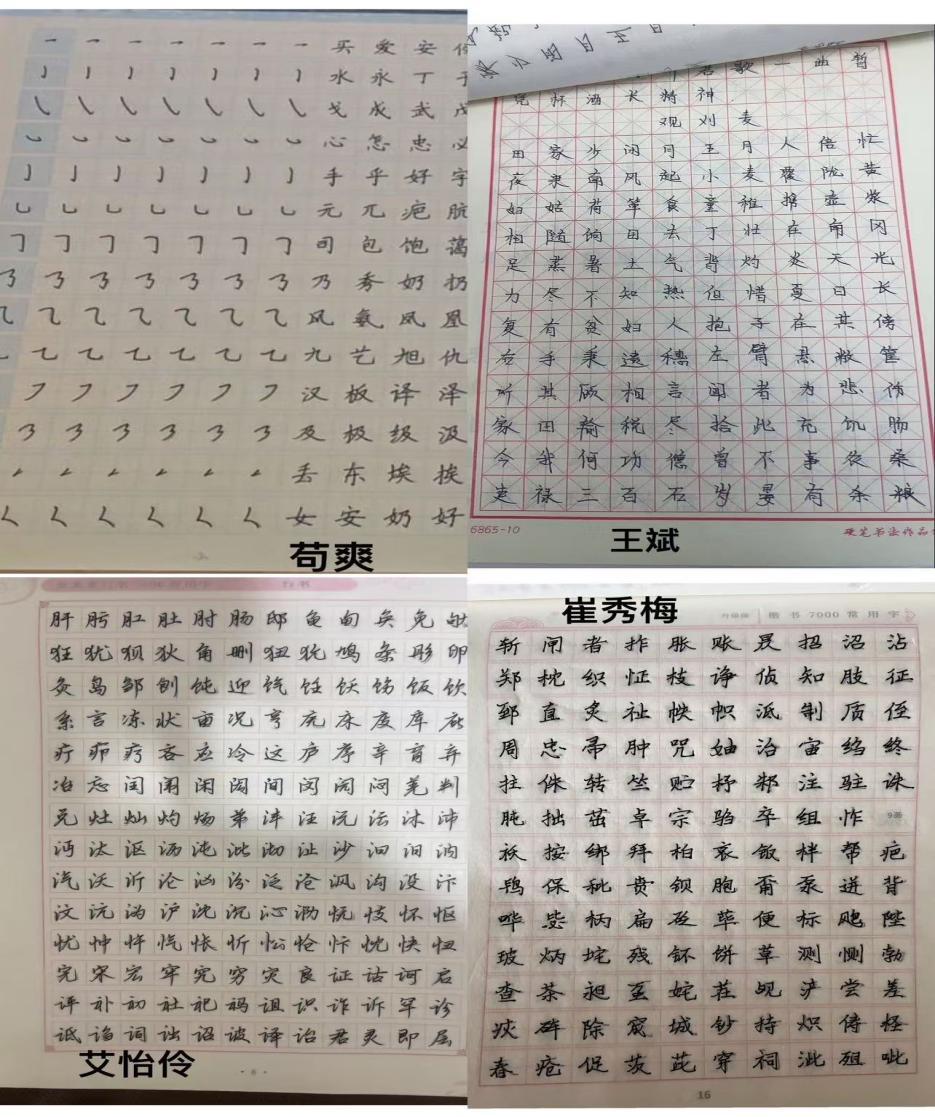 买 爱 安
水 永 丁 于
戈 成 武 戊
心 怎 忠 必
手 乎 好 字
元 兀 疤 肮
司 包 饱 蔼
乃 秀 奶 扔
风 氨 凤 凰
九 艺 旭 仇
汉 板 译 泽
及 极 级 汲
丢 东 埃 挨
女 安 奶 好
苟爽
君 歌 一 曲 暂
凭 杯 酒 长 精 神
观 刈 麦
田 家 少 闲 月 五 月 人 倍 忙
夜 来 南 风 起 小 麦 覆 陇 黄
妇 姑 荷 箪 食 童 稚 携 壶 浆
相 随 饷 田 去 丁 壮 在 南 冈
足 蒸 暑 土 气 背 灼 炎 天 光
力 尽 不 知 热 但 惜 夏 日 长
复 有 贫 妇 人 抱 子 在 其 傍
右 手 秉 遗 穗 左 臂 悬 敝 筐
听 其 顾 相 言 闻 者 为 悲 伤
家 田 输 税 尽 拾 此 充 饥 肠
今 我 何 功 德 曾 不 事 农 桑
吏 禄 三 百 石 岁 晏 有 余 粮
6865-10
硬笔书法作品
王斌
肝 肟 肛 肚 肘 肠 邸 龟 甸 奂 免 劬
狂 犹 狈 狄 角 删 狃 狁 鸠 条 彤 卵
灸 岛 邹 刨 饨 迎 饩 饪 饫 饬 饭 饮
系 言 冻 状 亩 况 亨 庑 床 庋 库 庇
疔 疖 疗 吝 应 冷 这 庐 序 辛 育 弃
冶 忘 闰 闱 闲 闳 间 闵 闶 闷 羌 判
兑 灶 灿 灼 炀 弟 沣 汪 沅 沄 沐 沛
沔 汰 沤 沥 沌 沘 沏 沚 沙 汩 汨 汭
汽 沃 沂 沦 汹 汾 泛 沧 沨 沟 没 汴
汶 沆 沩 沪 沈 沉 沁 泐 怃 忮 怀 怄
忧 忡 忤 忾 怅 忻 忪 怆 忭 忱 快 忸
完 宋 宏 牢 究 穷 灾 良 证 诂 诃 启
评 补 初 社 祀 祃 诅 识 诈 诉 罕 诊
诋 诌 词 诎 诏 诐 译 诒 君 灵 即 层
艾怡伶
· 8 ·
崔秀梅
楷 书 7000 常 用 字
斩 闸 者 拃 胀 账 昃 招 沼 沾
郑 枕 织 怔 枝 诤 侦 知 肢 征
郅 直 炙 祉 帙 帜 泜 制 质 侄
周 忠 帚 肿 咒 妯 治 宙 绉 终
拄 侏 转 竺 贮 杼 邾 注 驻 诛
肫 拙 茁 卓 宗 驺 卒 组 怍 9画
袄 按 绑 拜 柏 哀 钣 柈 帮 疤
鸨 保 秕 贵 钡 胞 甭 泵 迸 背
哗 毖 柄 扁 砭 荜 便 标 飑 陛
玻 炳 垞 残 钚 饼 草 测 恻 勃
查 茶 昶 虿 姹 茬 觇 浐 尝 差
瓞 砗 除 宸 城 钞 持 炽 俦 柽
春 疮 促 茇 茈 穿 祠 泚 殂 呲
16